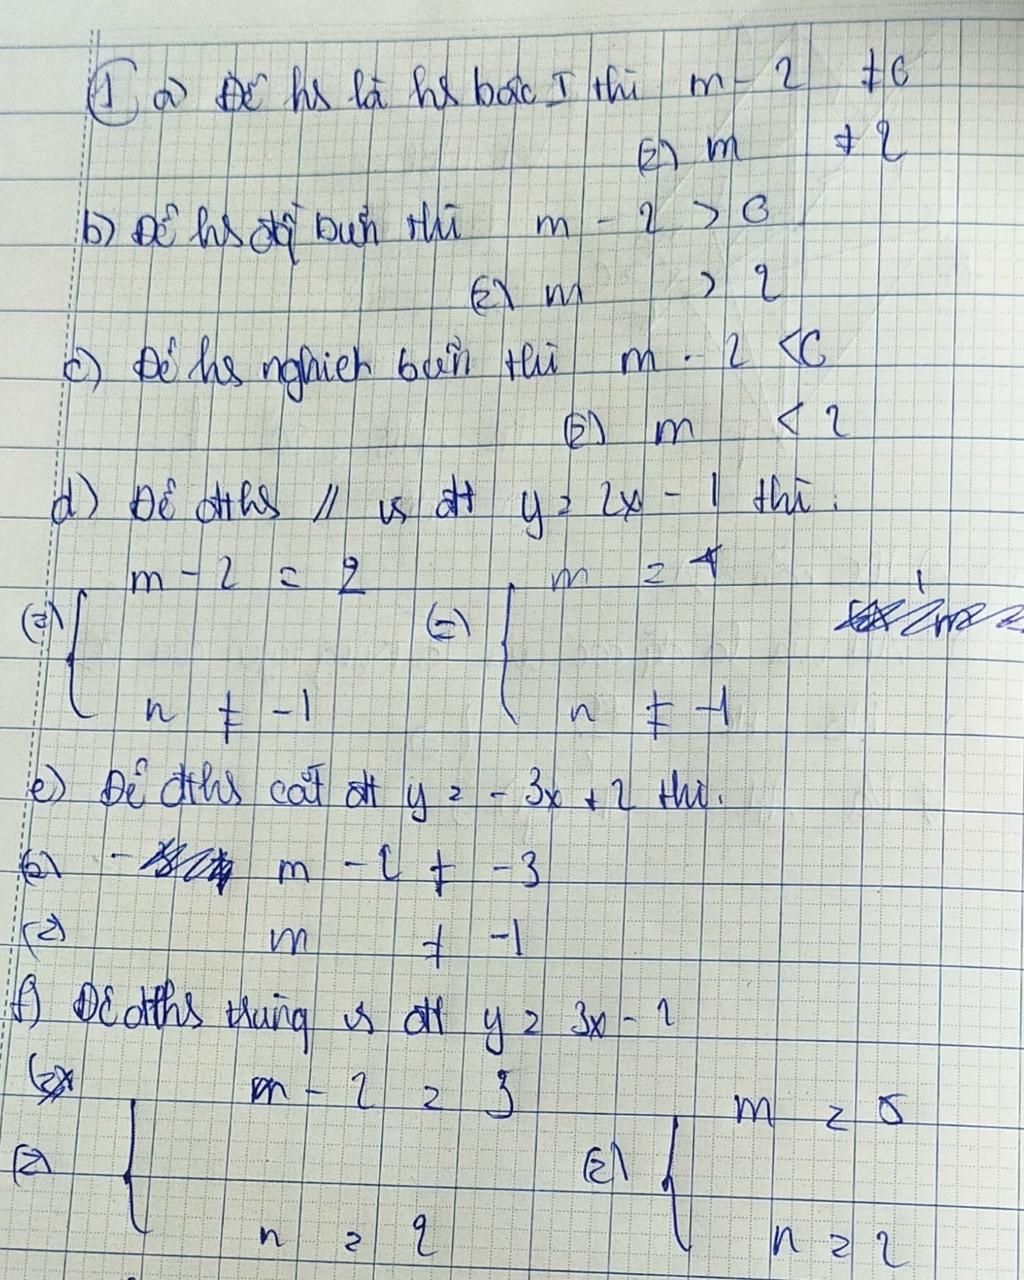 ① a) Để hs là hs bậc I thì m - 2 ≠ 0
(=) m ≠ 2
b) Để hs đg̀ biến thì m - 2 > 0
(=) m > 2
c) Để hs nghịch biến thì m - 2 < 0
(=) m < 2
d) Để đths // vs đt y = 2x - 1 thì.
(=) { m - 2 = 2 (=) { m = 4
n ≠ -1 n ≠ -1
e) Để đths cắt đt y = - 3x + 2 thì.
(=) - m - 2 ≠ -3
(=) m ≠ -1
f) Để đths trùng vs đt y = 3x - 2
(=) { m - 2 = 3 (=) { m = 5
n = 2 n = 2